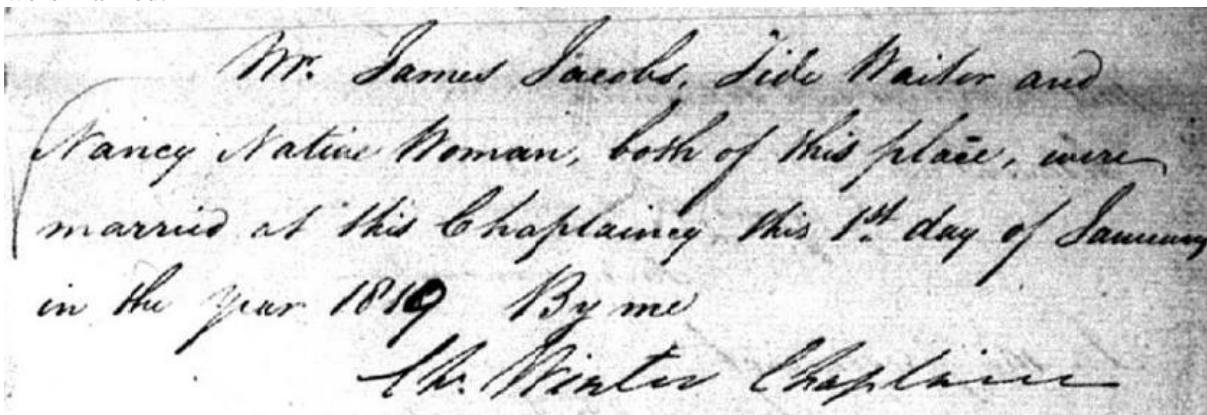 Mr. James Jacobs, Tide Waiter and
Nancy Native Woman, both of this place, were
married at this Chaplaincy this 1st day of January
in the year 1819 By me
Ch. Winter Chaplain